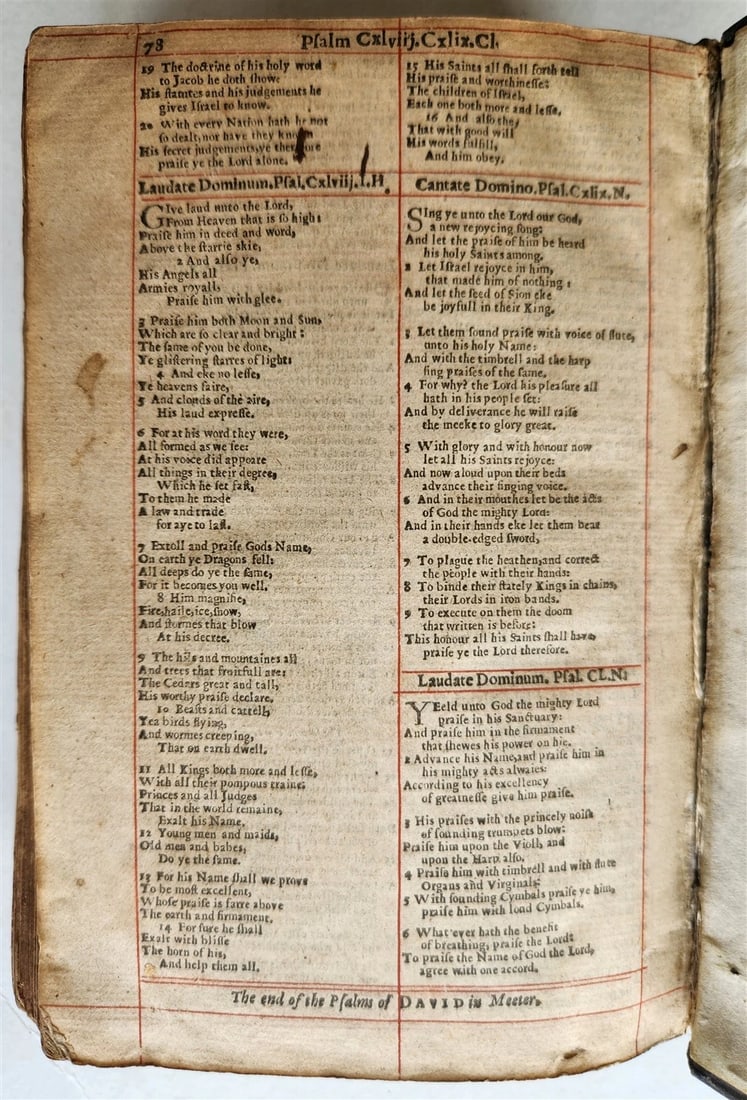 78
Pſalm Cxlviij.Cxlix.Cl.
19 The doctrine of his holy word
to Jacob he doth ſhow:
His ſtatutes and his judgements he
gives Iſrael to know.
20 With every Nation hath he not
ſo dealt, nor have they known
His ſecret judgements, ye therefore
praiſe ye the Lord alone.
Laudate Dominum. Pſal. Cxlviij. I.H.
GIve laud unto the Lord,
From Heaven that is ſo high:
Praiſe him in deed and word,
Above the ſtarrie skie,
2 And alſo ye,
His Angels all
Armies royall,
Praiſe him with glee.
3 Praiſe him both Moon and Sun,
Which are ſo clear and bright:
The ſame of you be done,
Ye gliſtering ſtarres of light:
4 And eke no leſſe,
Ye heavens faire,
5 And clouds of the aire,
His laud expreſſe.
6 For at his word they were,
All formed as we ſee:
At his voice did appeare
All things in their degree,
Which he ſet faſt,
To them he made
A law and trade
for aye to laſt.
7 Extoll and praiſe Gods Name,
On earth ye Dragons fell:
All deeps do ye the ſame,
For it becomes you well.
8 Him magnifie,
Fire, haile, ice, ſnow,
And ſtormes that blow
At his decree.
9 The hils and mountaines all
And trees that fruitfull are:
The Ceders great and tall,
His worthy praiſe declare.
10 Beaſts and cattell,
Yea birds flying,
And wormes creeping,
That on earth dwell.
11 All Kings both more and leſſe,
With all their pompous traine;
Princes and all Judges
That in the world remaine,
Exalt his Name.
12 Young men and maids,
Old men and babes,
Do ye the ſame.
13 For his Name ſhall we prove
To be moſt excellent,
Whoſe praiſe is farre above
The earth and firmament.
14 For ſure he ſhall
Exalt with bliſſe
The horn of his,
And help them all.
15 His Saints all ſhall forth tell
His praiſe and worthineſſe:
The children of Iſrael,
Each one both more and leſſe,
16 And alſo they
That with good will
His words fulfill,
And him obey.
Cantate Domino. Pſal. Cxlix. N.
SIng ye unto the Lord our God,
a new rejoycing ſong:
And let the praiſe of him be heard
his holy Saints among.
2 Let Iſrael rejoyce in him,
that made him of nothing:
And let the ſeed of Sion eke
be joyfull in their King.
3 Let them ſound praiſe with voice of flute,
unto his holy Name:
And with the timbrell and the harp
ſing praiſes of the ſame.
4 For why? the Lord his pleaſure all
hath in his people ſet:
And by deliverance he will raiſe
the meeke to glory great.
5 With glory and with honour now
let all his Saints rejoyce:
And now aloud upon their beds
advance their ſinging voice.
6 And in their mouthes let be the acts
of God the mighty Lord:
And in their hands eke let them bear
a double-edged ſword,
7 To plague the heathen, and correct
the people with their hands:
8 To binde their ſtately Kings in chains,
their Lords in iron bands.
9 To execute on them the doom
that written is before:
This honour all his Saints ſhall have,
praiſe ye the Lord therefore.
Laudate Dominum. Pſal. CL. N.
YEeld unto God the mighty Lord
praiſe in his Sanctuary:
And praiſe him in the firmament
that ſhewes his power on hie.
2 Advance his Name, and praiſe him in
his mighty acts alwaies:
According to his excellency
of greatneſſe give him praiſe.
3 His praiſes with the princely noiſe
of ſounding trumpets blow:
Praiſe him upon the Violl, and
upon the Harp alſo.
4 Praiſe him with timbrell and with flute
Organs and Virginals:
5 With ſounding Cymbals praiſe ye him,
praiſe him with loud Cymbals.
6 What ever hath the benefit
of breathing, praiſe the Lord:
To praiſe the Name of God the Lord,
agree with one accord.
The end of the Pſalms of DAVID in Meeter.